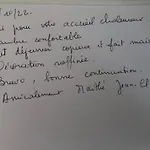 10/22.
i pour votre accueil chaleureux
ambre confortable
it déjeuner copieux et fait mais
Décoration raffinée.
Bravo, bonne continuation
Amicalement Maïthé Jean.Cl